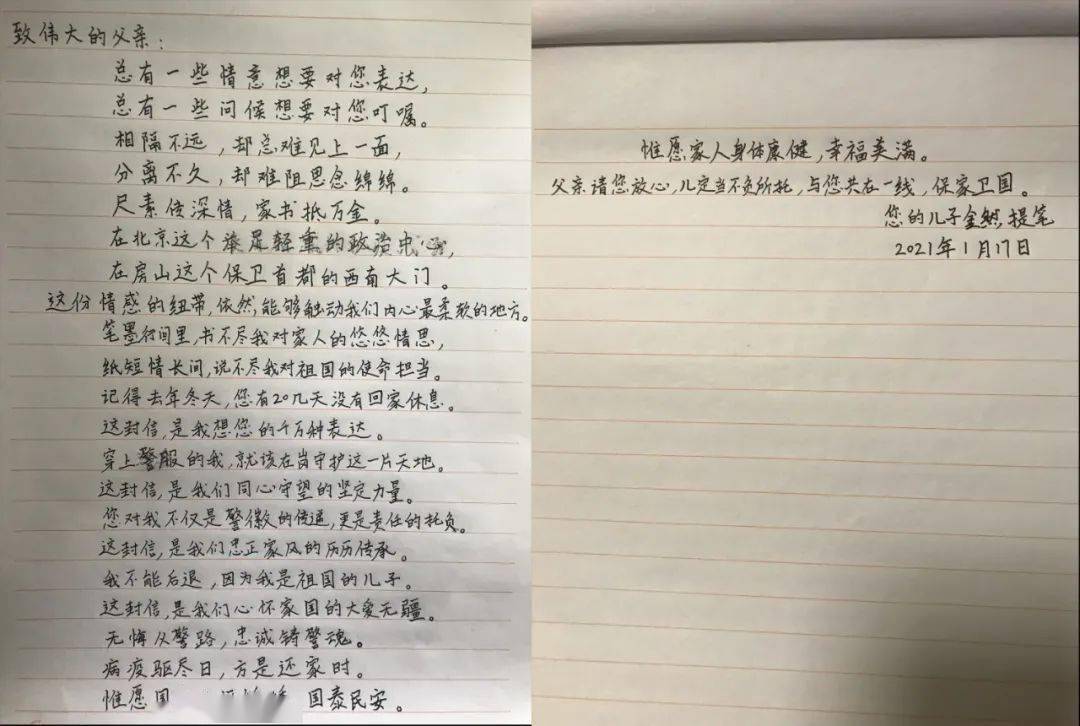 致伟大的父亲：
总有一些情意想要对您表达，
总有一些问候想要对您叮嘱。
相隔不远，却总难见上一面，
分离不久，却难阻思念绵绵。
尺素传深情，家书抵万金。
在北京这个举足轻重的政治中心，
在房山这个保卫首都的西南大门。
这份情感的纽带，依然能够触动我们内心最柔软的地方。
笔墨行间里，书不尽我对家人的悠悠情思，
纸短情长间，说不尽我对祖国的使命担当。
记得去年冬天，您有20几天没有回家休息。
这封信，是我想您的千万种表达。
穿上警服的我，就该在岗守护这一片天地。
这封信，是我们同心守望的坚定力量。
您对我不仅是警徽的传递，更是责任的托负。
这封信，是我们忠正家风的历历传承。
我不能后退，因为我是祖国的儿子。
这封信，是我们心怀家国的大爱无疆。
无悔从警路，忠诚铸警魂。
病疫驱尽日，方是还家时。
惟愿国 国泰民安。
惟愿家人身体康健，幸福美满。
父亲请您放心，儿定当不负所托，与您共在一线，保家卫国。
您的儿子金然提笔
2021年1月17日